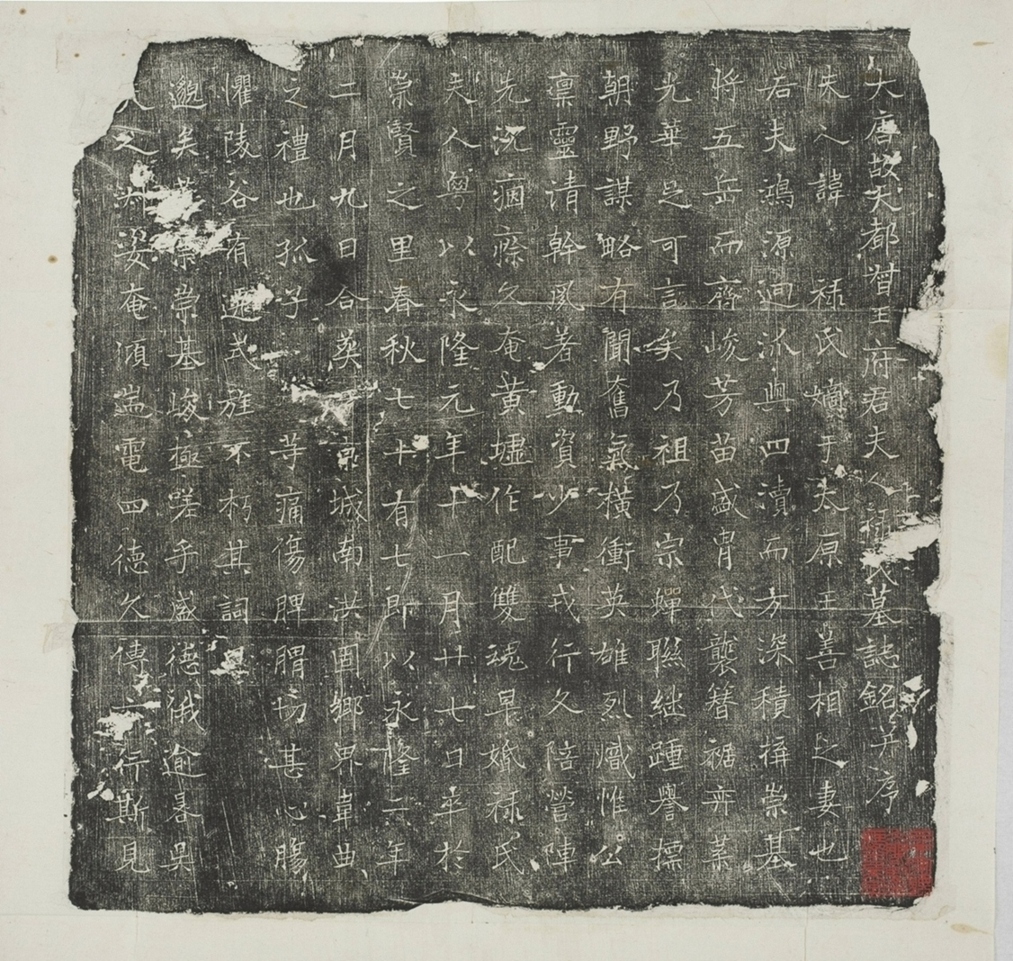 大唐故夫都督王府君夫人祿氏墓誌銘并序
夫人諱 祿氏嬪于太原王善相之妻也
若夫鴻源迥派與四瀆而方深積構崇基
將五岳而齊峻芳苗盛胄代襲簪裾奕葉
光華足可言矣乃祖乃宗蟬聯繼踵譽標
朝野謀略有聞奮氣橫衝英雄烈熾惟公
稟靈清幹風著動資少事戎行久陪營陣
先沉痼瘵久奄黃壚作配雙魂早婚祿氏
夫人粵以永隆元年十一月廿七日卒於
崇賢之里春秋七十有七即以永隆二年
二月九日合葬京城南洪固鄉界韋曲
之禮也孤子 等痛傷脾膶切甚心膓
懼陵谷有遷式旌不朽其詞曰
邈矣崇崇基峻極嗟乎盛德俄逾晷昃
人之姿奄須電四德久傳斯見